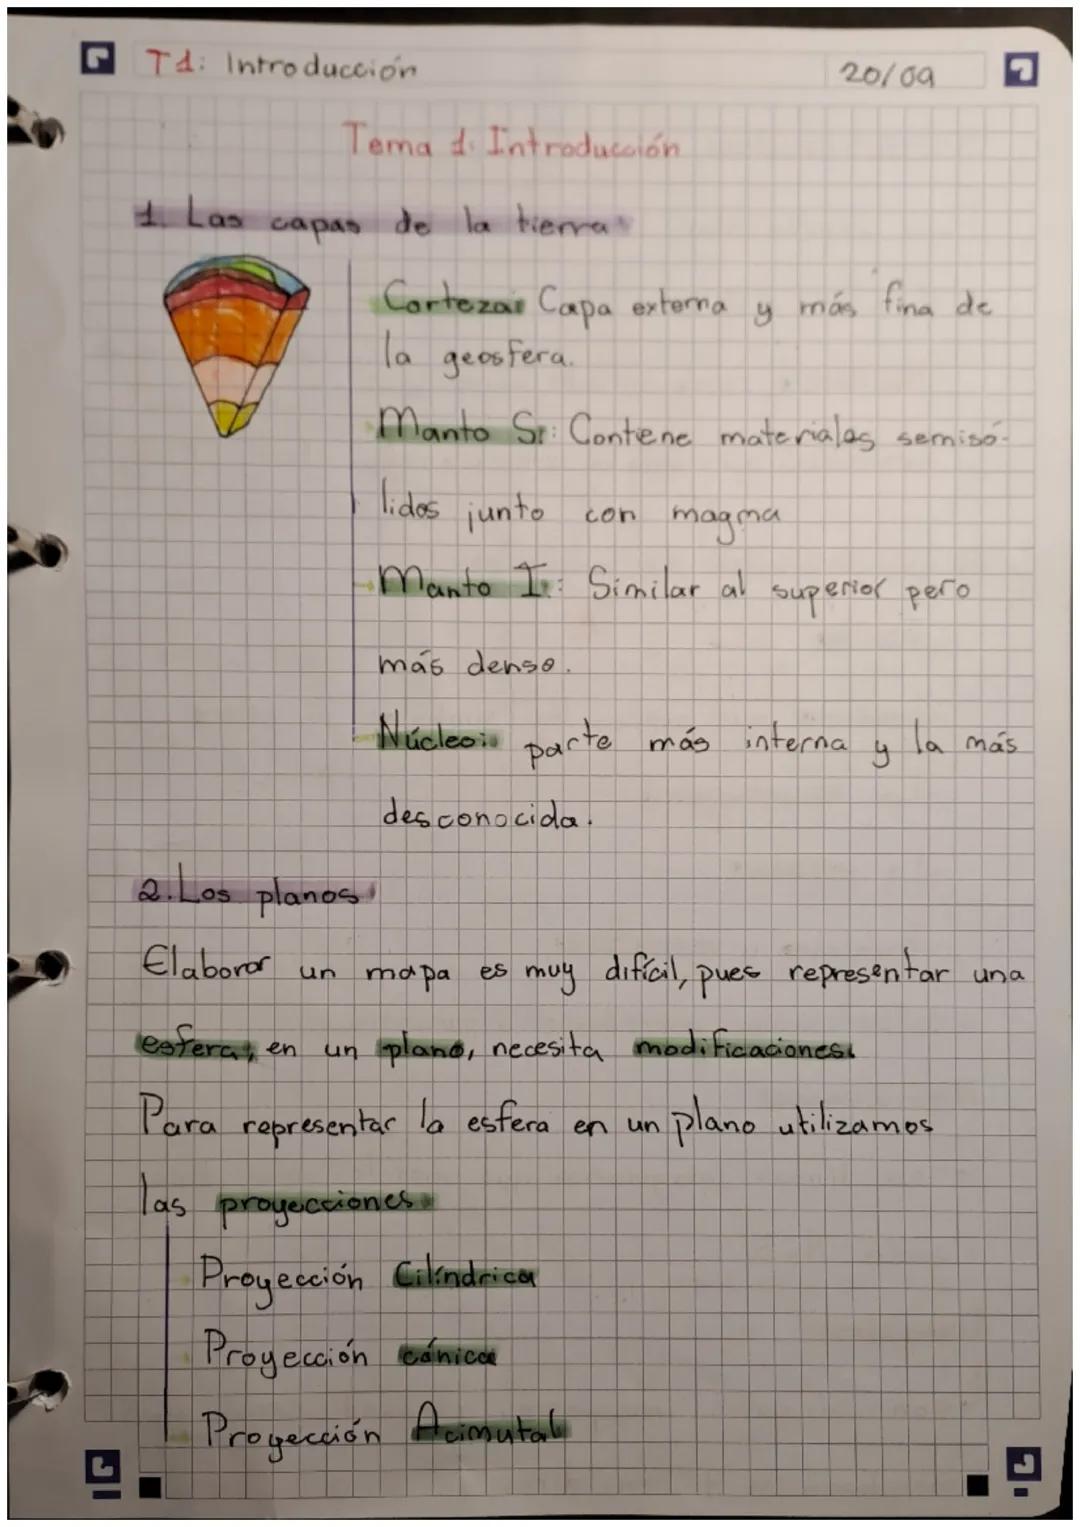 T1: Introducción
20/09
Tema 1: Introducción
1. Las capas de la tierra
Corteza: Capa externa y más fina de
la geosfera.
Manto S.: Contiene materiales semisó-
lidos junto con magma
Manto I.: Similar al superior pero
más denso.
Núcleo: parte más interna y la más
desconocida.
2. Los planos
Elaborar un mapa es muy difícil, pues representar una
esfera, en un plano, necesita modificaciones.
Para representar la esfera en un plano utilizamos
las proyecciones
Proyección Cilíndrica
Proyección cónica
Proyección Acimutal